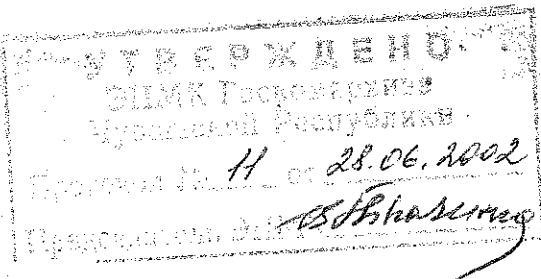 УТВЕРЖДЕНО
ЭПМК Госкомархива
Чувашской Республики
Протокол № 11 от 28.06.2002
Председатель ЭПМК